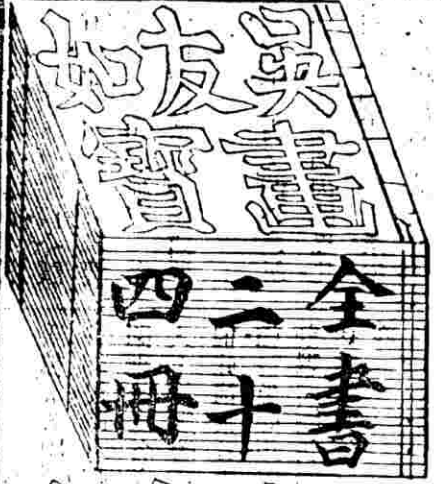 吳友如
畫寶
全書
二十
四冊